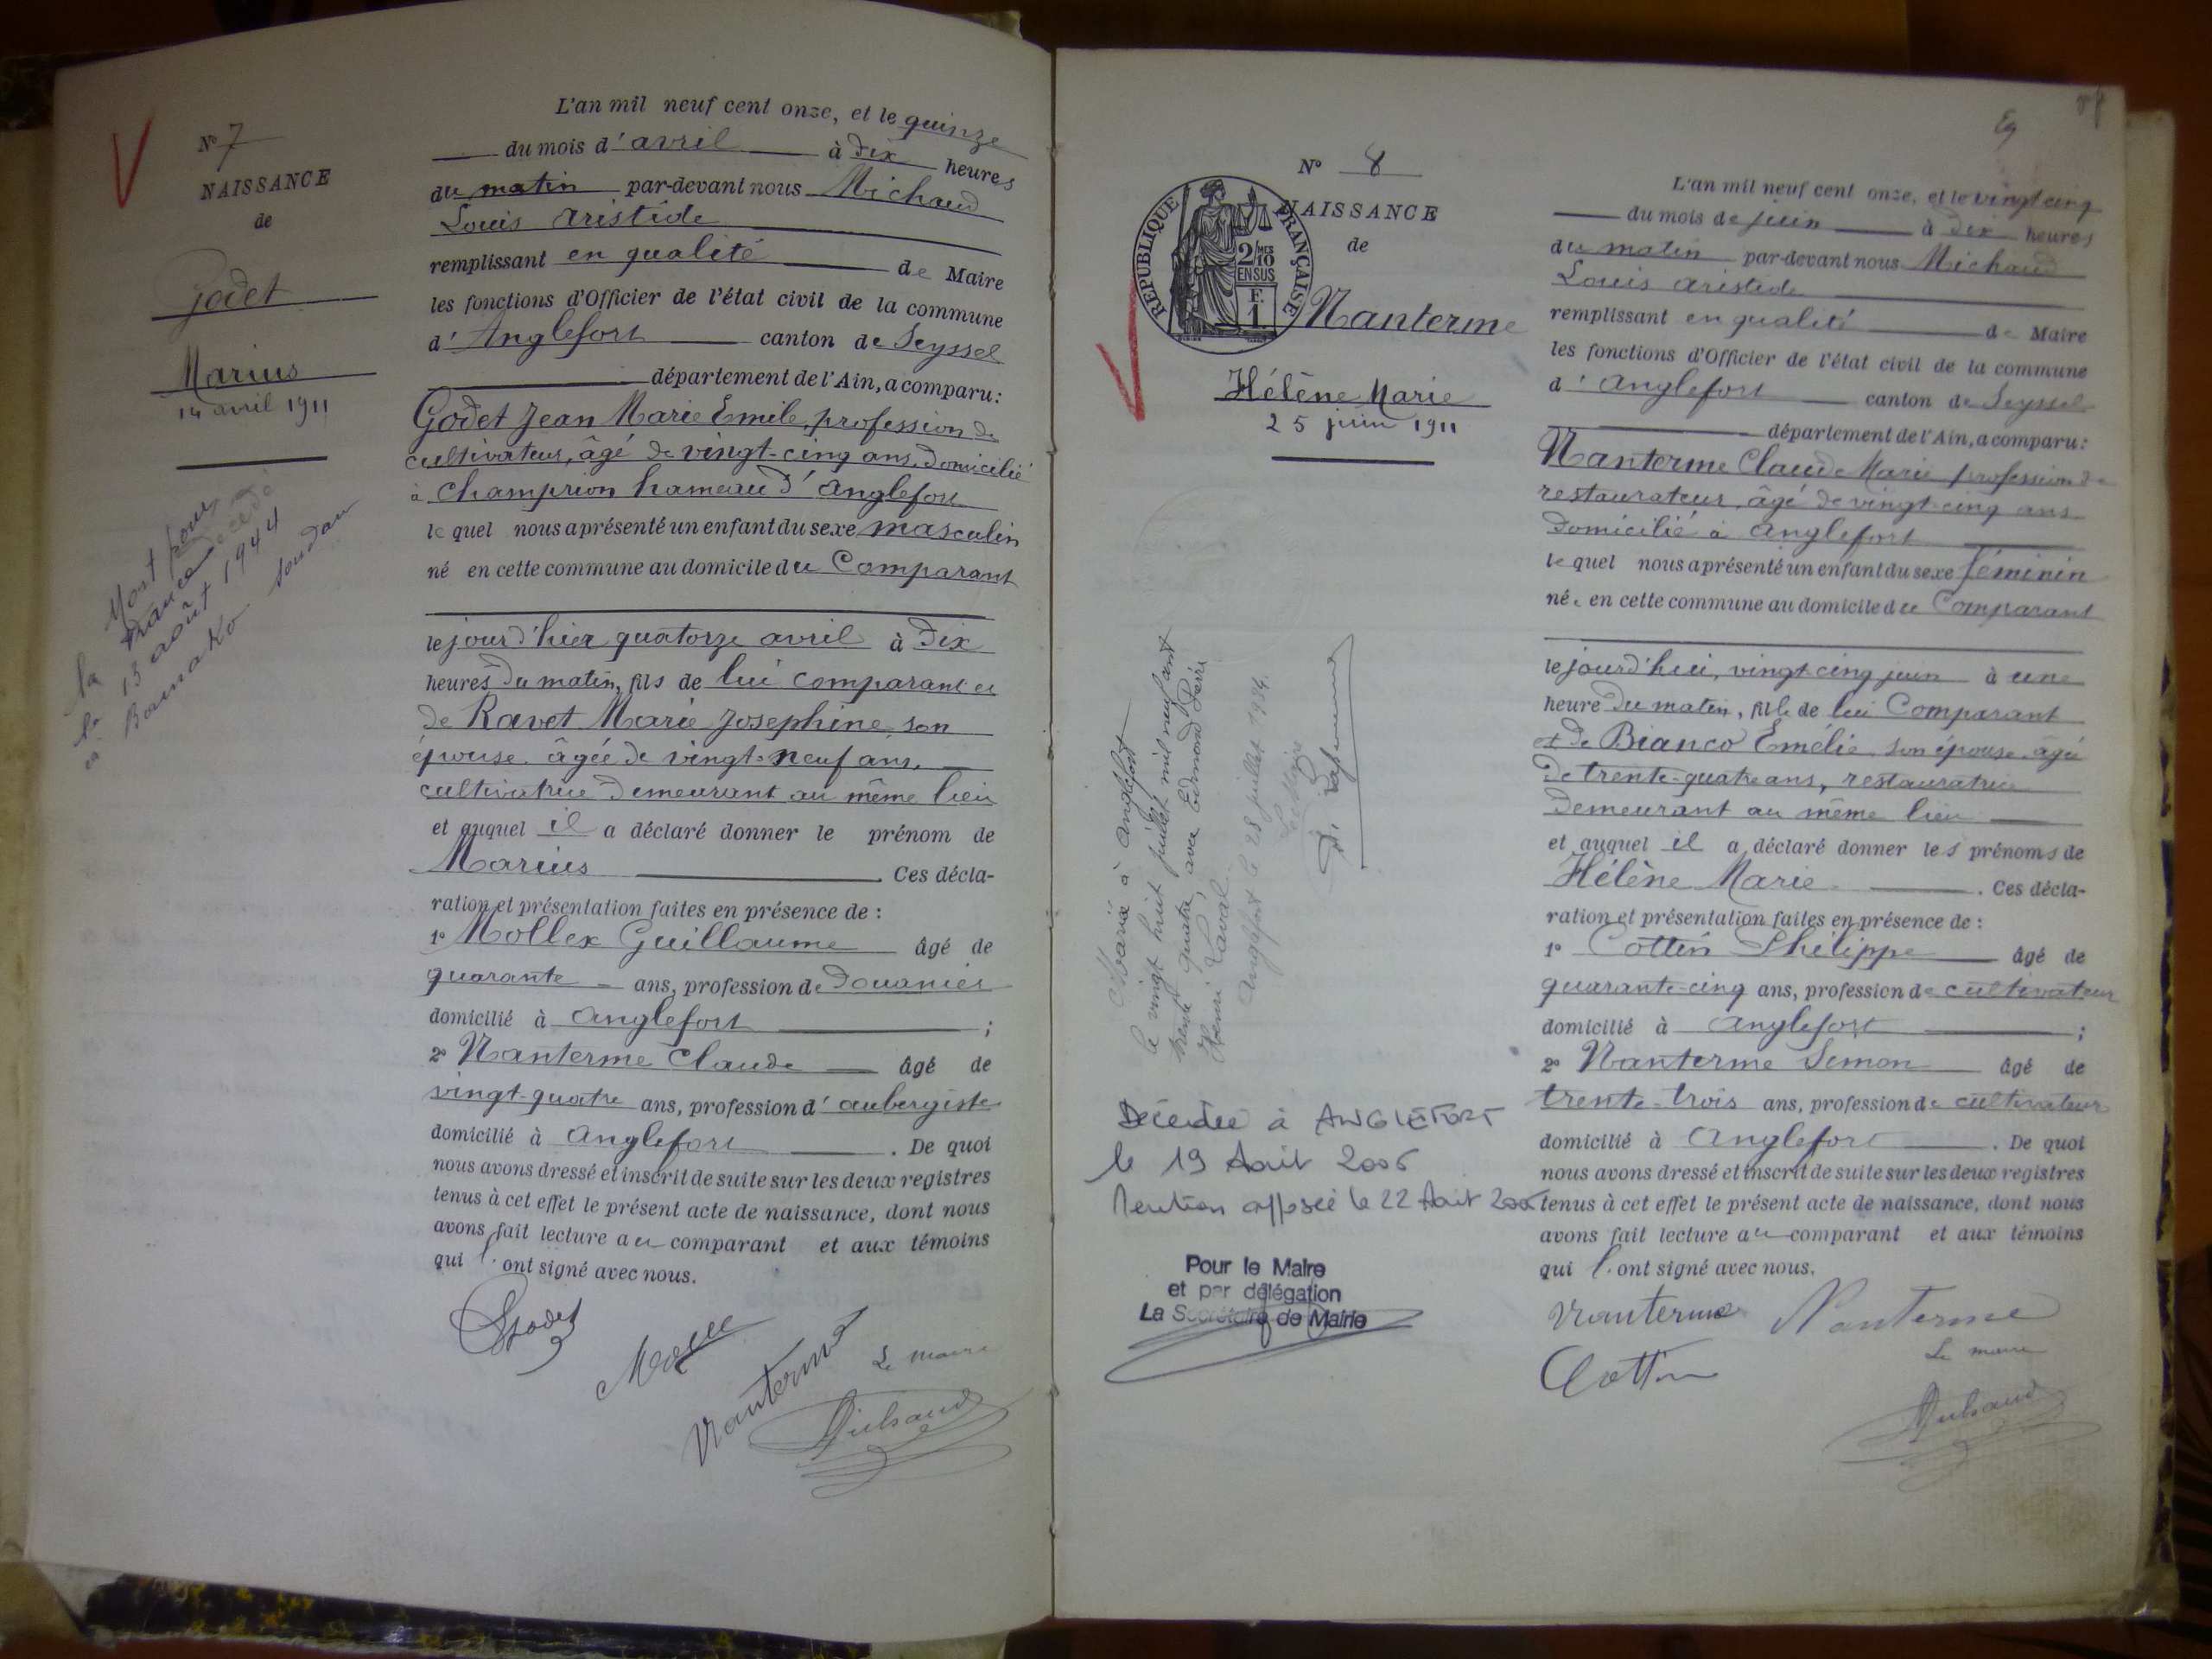 N° 7
NAISSANCE
de
Godet
Marius
14 avril 1911
Mort pour
la France décédé
le 13 août 1944
à Bamako Soudan
L'an mil neuf cent onze, et le quinze
du mois d'avril à dix heures
du matin par-devant nous Michaud
Louis Aristide
remplissant en qualité de Maire
les fonctions d'Officier de l'état civil de la commune
d'Anglefort canton de Seyssel
département de l'Ain, a comparu:
Godet Jean Marie Emile, profession de
cultivateur, âgé de vingt-cinq ans, domicilié
à Champrion hameau d'Anglefort
lequel nous a présenté un enfant du sexe masculin
né en cette commune au domicile du Comparant
le jour d'hier quatorze avril à dix
heures du matin, fils de lui comparant et
de Ravet Marie Josephine, son
épouse âgée de vingt-neuf ans,
cultivatrice demeurant au même lieu
et auquel il a déclaré donner le prénom de
Marius. Ces décla-
ration et présentation faites en présence de :
1° Mollex Guillaume âgé de
quarante ans, profession de Douanier
domicilié à Anglefort ;
2° Nanterme Claude âgé de
vingt-quatre ans, profession d'aubergiste
domicilié à Anglefort. De quoi
nous avons dressé et inscrit de suite sur les deux registres
tenus à cet effet le présent acte de naissance, dont nous
avons fait lecture au comparant et aux témoins
qui l'ont signé avec nous.
Godet
Nanterme
Le maire
Michaud
N° 8
NAISSANCE
de
REPUBLIQUE FRANÇAISE
2/10 MES
EN SUS
F.
1
Nanterme
Hélène Marie
25 juin 1911
Mariée à Anglefort
le vingt huit juillet mil neuf cent
trente quatre, avec Edmond Pierre
Henri Laval
Anglefort le 28 juillet 1934.
Le Maire
Décédée à ANGLEFORT
le 19 Août 2006
Mention apposée le 22 Août 2006
Pour le Maire
et par délégation
La Secrétaire de Mairie
L'an mil neuf cent onze, et le vingt cinq
du mois de juin à dix heures
du matin par-devant nous Michaud
Louis Aristide
remplissant en qualité de Maire
les fonctions d'Officier de l'état civil de la commune
d'Anglefort canton de Seyssel
département de l'Ain, a comparu:
Nanterme Claude Marie profession de
restaurateur, âgé de vingt-cinq ans
domicilié à Anglefort
lequel nous a présenté un enfant du sexe féminin
née en cette commune au domicile du Comparant
le jourd'hui, vingt-cinq juin à une
heure du matin, fille de lui Comparant
et de Bianco Emélie son épouse âgée
de trente-quatre ans, restauratrice
demeurant au même lieu
et auquel il a déclaré donner les prénoms de
Hélène Marie. Ces décla-
ration et présentation faites en présence de :
1° Cottin Philippe âgé de
quarante-cinq ans, profession de cultivateur
domicilié à Anglefort ;
2° Nanterme Simon âgé de
trente-trois ans, profession de cultivateur
domicilié à Anglefort. De quoi
nous avons dressé et inscrit de suite sur les deux registres
tenus à cet effet le présent acte de naissance, dont nous
avons fait lecture au comparant et aux témoins
qui l'ont signé avec nous.
Nanterme Nanterme
Cottin
Le maire
Michaud